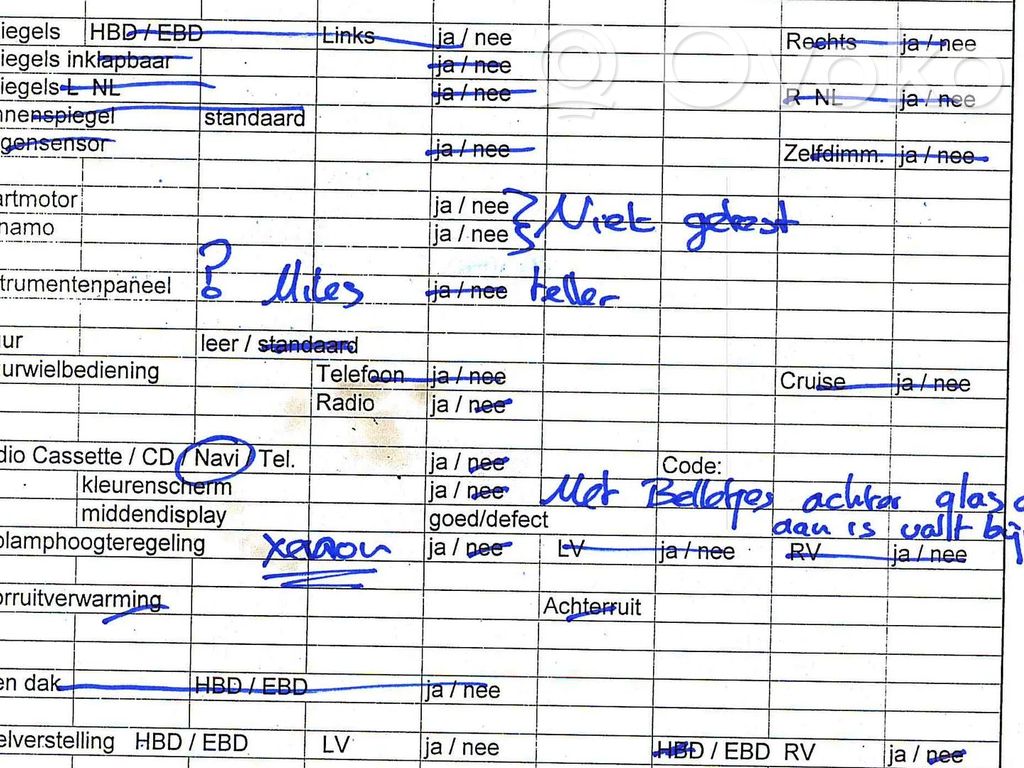 iegels HBD / EBD Links ja / nee Rechts ja / nee
iegels inklapbaar ja / nee
iegels L NL ja / nee R NL ja / nee
nnenspiegel standaard
gensensor ja / nee Zelfdimm. ja / nee
artmotor ja / nee } Niet getest
namo ja / nee
trumentenpaneel ? Miles ja / nee teller
ur leer / standaard
urwielbediening Telefoon ja / nee Cruise ja / nee
Radio ja / nee
dio Cassette / CD / Navi / Tel. ja / nee Code:
kleurenscherm ja / nee Met Belletjes achter glas
middendisplay goed/defect aan is valt bij
plamphoogteregeling xenon ja / nee LV ja / nee RV ja / nee
orruitverwarming Achterruit
en dak HBD / EBD ja / nee
elverstelling HBD / EBD LV ja / nee HBD / EBD RV ja / nee
Ovoko